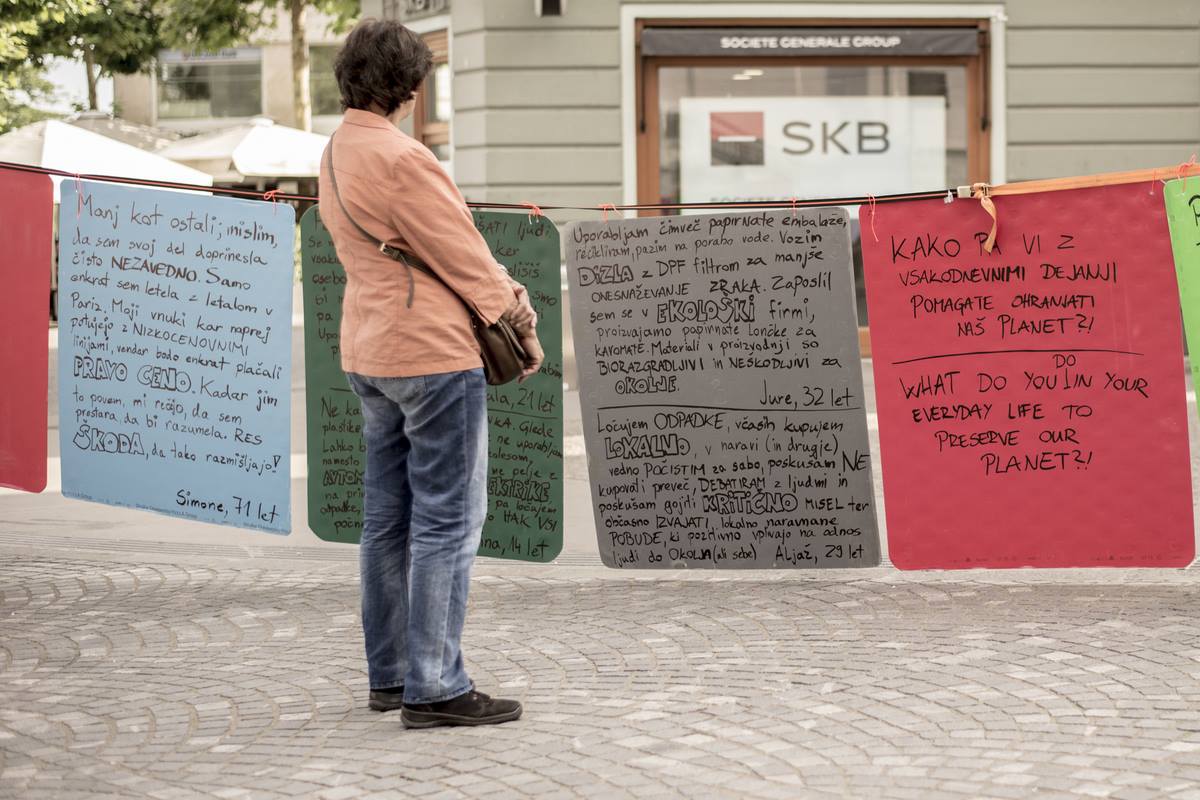 SKB
SOCIETE GENERALE GROUP
SKB
Manj kot ostali, mislim,
da sem svoj del doprinesla
čisto NEZAVEDNO. Samo
enkrat sem letela z letalom v
Pariz. Moji vnuki kar naprej
potujejo z NIZKOCENOVNIMI
linijami, vendar bodo enkrat plačali
PRAVO CENO. Kadar jim
to povem, mi rečejo, da sem
prestara, da bi razumela. RES
ŠKODA, da tako razmišljajo!
Simone, 71 let
ljudi
ker
slišiš.
ala, 21 let
Ne
plastike
Glede
Lahko
ne uporabljam
namesto
ne pelje z
AVTOM
ELEKTRIKE
na
pa ločujem
odpadke,
HAK VSI
počne
na, 14 let
Uporabljam čimveč papirnate embalaže,
recikliram, pazim na porabo vode. Vozim
DIZLA z DPF filtrom za manjše
ONESNAŽEVANJE ZRAKA. Zaposlil
sem se v EKOLOŠKI firmi,
proizvajamo papirnate lončke za
KAVOMATE. Materiali v proizvodnji so
BIORAZGRADLJIVI in NEŠKODLJIVI za
OKOLJE.
Jure, 32 let
Ločujem ODPADKE, včasih kupujem
LOKALNO, v naravi (in drugje)
vedno POČISTIM za sabo, poskušam NE
kupovati preveč, DEBATIRAM z ljudmi in
poskušam gojiti KRITIČNO MISEL ter
občasno IZVAJATI lokalno naravnane
POBUDE, ki pozitivno vplivajo na odnos
ljudi do OKOLJA (ali sebe) Aljaž, 29 let
KAKO PA VI Z
VSAKODNEVNIMI DEJANJI
POMAGATE OHRANJATI
NAŠ PLANET?!
WHAT DO YOU DO IN YOUR
EVERYDAY LIFE TO
PRESERVE OUR
PLANET?!